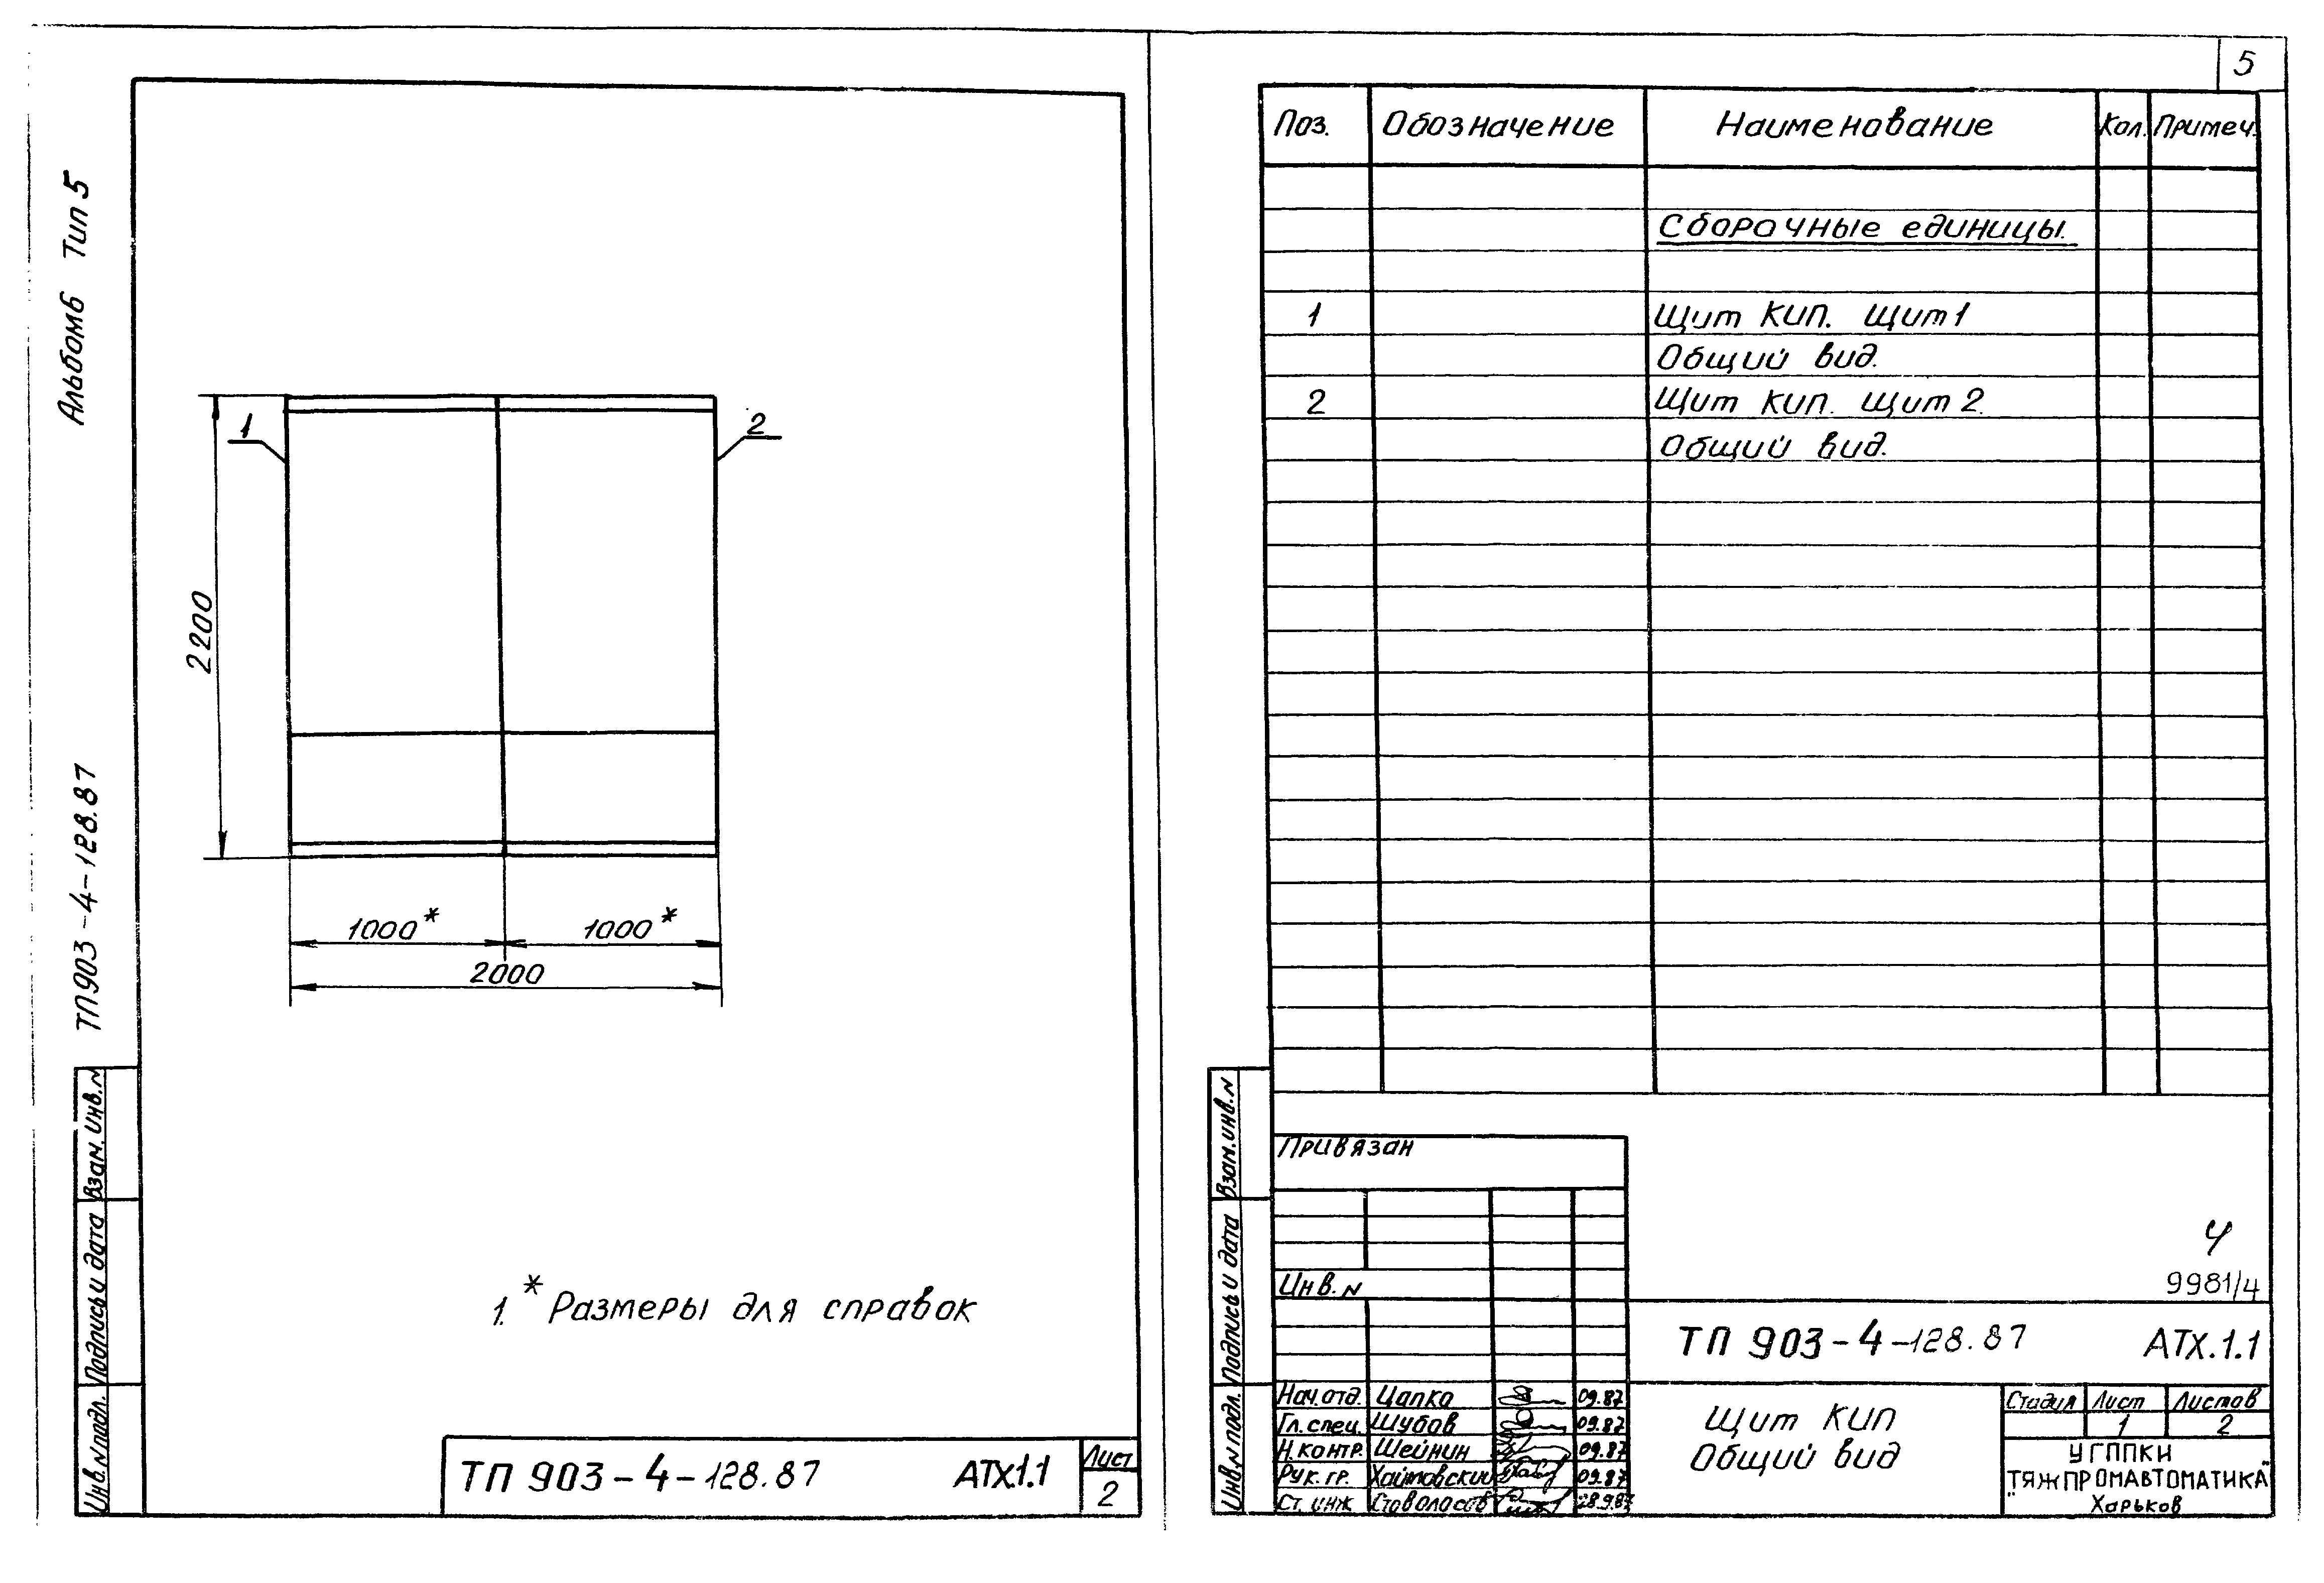 Альбом 6 Тип 5
ТП 903-4-128.87
1
2
2200
1000*
1000*
2000
1. * Размеры для справок
Взам. инв. N
Подпись и дата
Инв. N подл.
ТП 903-4-128.87 АТХ.1.1
Лист
2
5
Поз. Обозначение Наименование Кол. Примеч.
Сборочные единицы.
1 Щит КИП. Щит 1
Общий вид.
2 Щит КИП. Щит 2.
Общий вид.
Взам. инв. N
Подпись и дата
Инв. N подл.
Привязан
Инв. N
4
9981/4
ТП 903-4-128.87 АТХ.1.1
Нач. отд. Цапко 09.87
Гл. спец. Шубов 09.87
Н. контр. Шейнин 09.87
Рук. гр. Хаймовский 09.87
Ст. инж.
Щит КИП
Общий вид
Стадия Лист Листов
1 2
УГППКИ
"ТЯЖПРОМАВТОМАТИКА"
Харьков